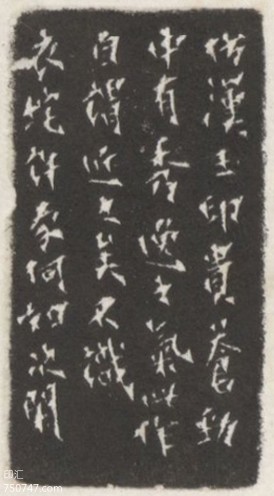 仿漢玉印貴蒼勁
中有秀逸之氣此作
自謂近之矣不識
衣家何如次閑
印汇
750747.com